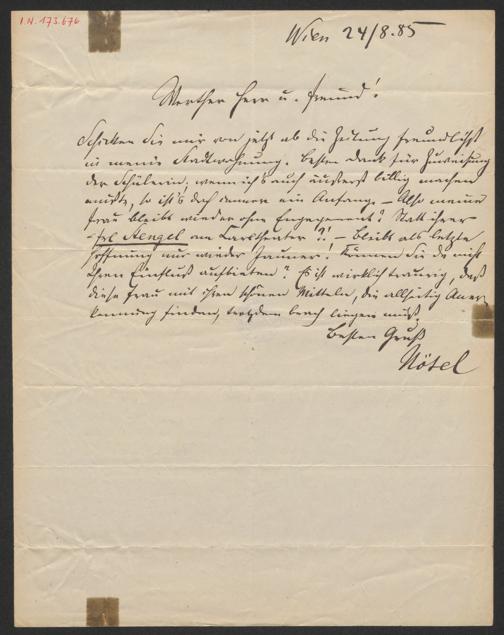 I.N. 173.676
Wien 24/8.85
Werther Herr u. Freund!
Schicken Sie mir von jetzt ab die Zeitung freundlichst
in meine Stadtwohnung. Besten Dank für Zuweisung
der Schülerin, wenn ich's auch äußerst billig machen
mußte, so ist's doch immer ein Anfang. – Also meine
Frau bleibt wieder ohne Engagement? Statt ihrer
– Frl. Stengel am Carltheater?! – Bleibt als letzte
Hoffnung nur wieder Jauner! Können Sie da nicht
Ihren Einfluß aufbieten? Es ist wirklich traurig, daß
diese Frau mit ihren schönen Mitteln, die allseitig Aner-
kennung finden, trotzdem brach liegen muß.
Besten Gruß
Nötel